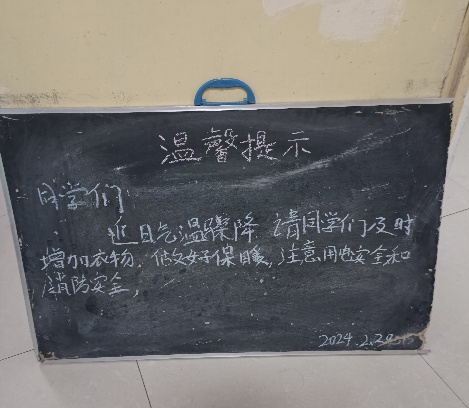 温馨提示
同学们
近日气温骤降 请同学们及时
增加衣物，做好保暖，注意用电安全和
消防安全，
2024.2.